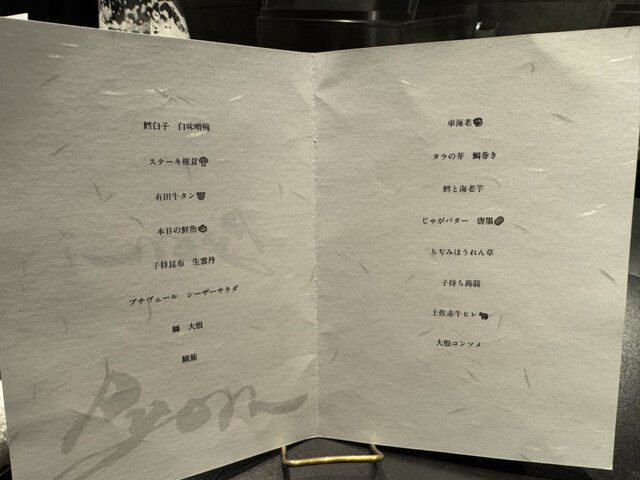 鱈白子　白味噌椀
ステーキ椎茸
有田牛タン
本日の鮮魚
子持昆布　生雲丹
プチヴェール　シーザーサラダ
鰤　大根
鯛
車海老
タラの芽　鯛巻き
鱈と海老芋
じゃがバター　唐墨
ちぢみほうれん草
子持ち蒟蒻
土佐赤牛ヒレ
大根コンソメ
Ryom